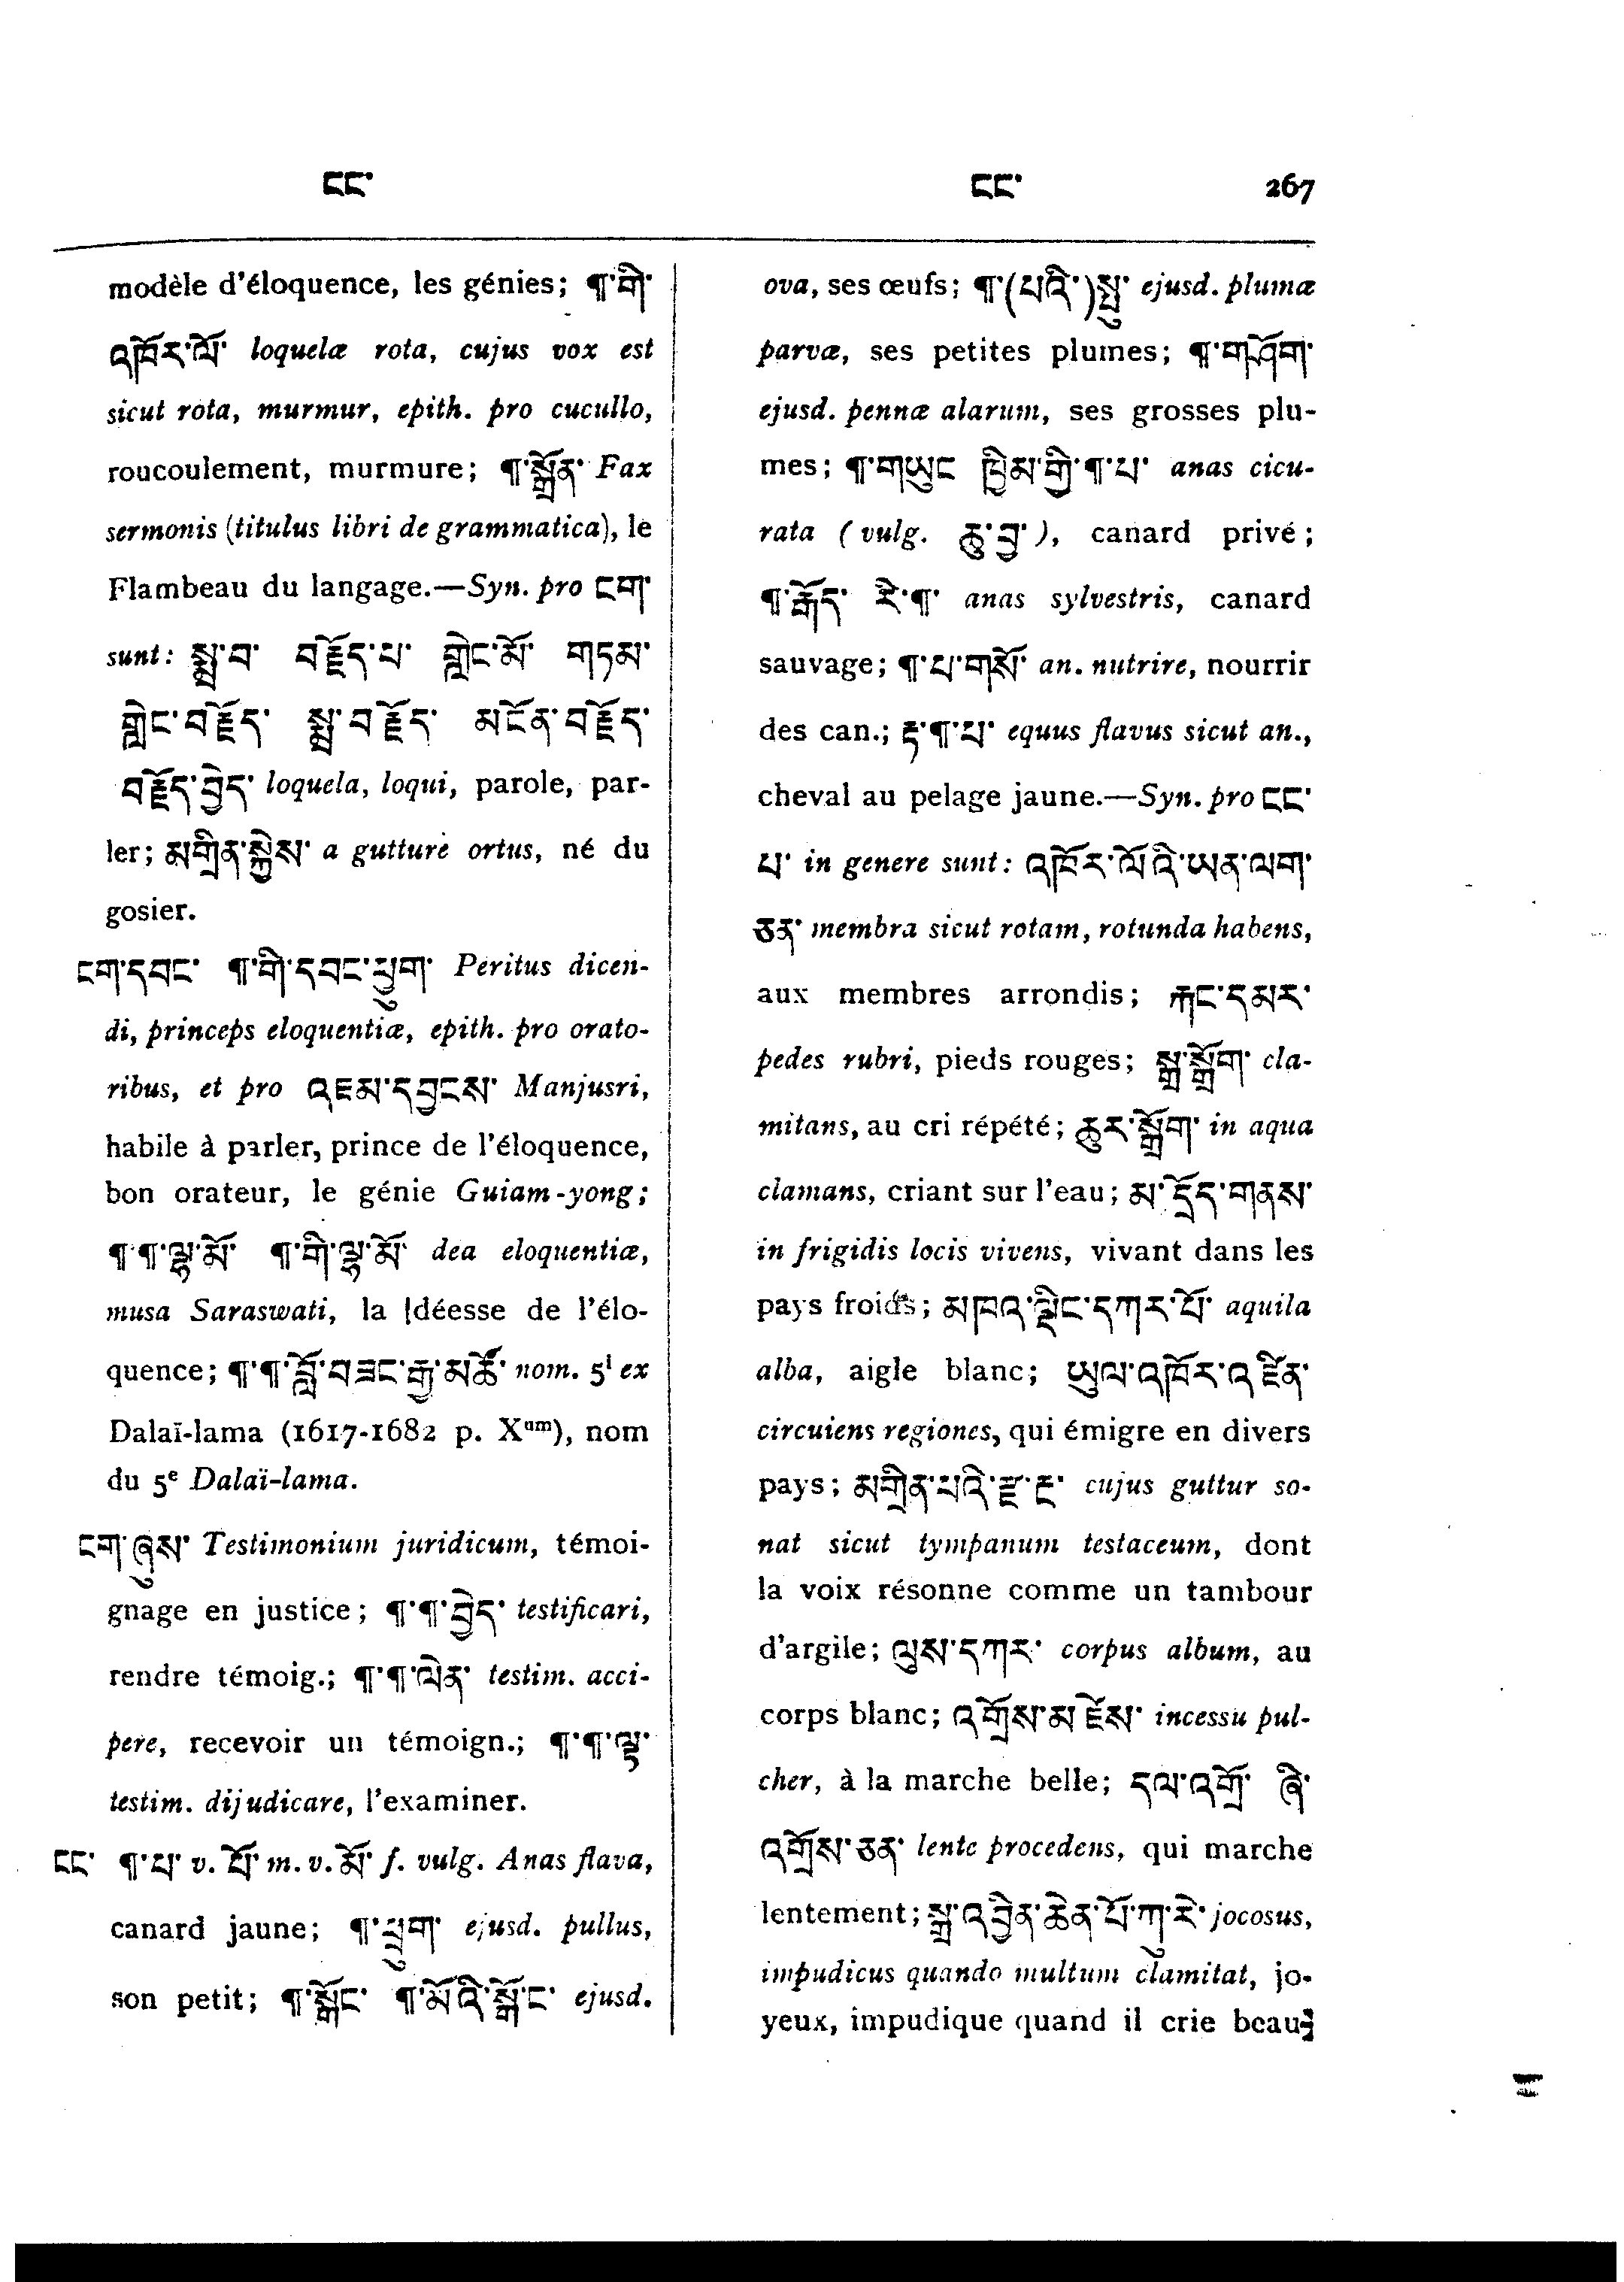 ངང་
ངང་
267
modèle d'éloquence, les génies; ¶་གི་
འཁོར་ལོ་ loquelæ rota, cujus vox est
sicut rota, murmur, epith. pro cucullo,
roucoulement, murmure; ¶་སྒྲོན་ Fax
sermonis (titulus libri de grammatica), le
Flambeau du langage.—Syn. pro ངག་
sunt: སྨྲ་བ་ བརྗོད་པ་ གླེང་མོ་ གཏམ་
གླེང་བརྗོད་ སྨྲ་བརྗོད་ མངོན་བརྗོད་
བརྗོད་བྱེད་ loquela, loqui, parole, par-
ler; མགྲིན་སྐྱེས་ a gutture ortus, né du
gosier.
ངག་དབང་ ¶་གི་དབང་ཕྱུག་ Peritus dicen-
di, princeps eloquentiæ, epith. pro orato-
ribus, et pro འཇམ་དབྱངས་ Manjusri,
habile à parler, prince de l'éloquence,
bon orateur, le génie Guiam-yong;
¶་¶་ལྷ་མོ་ ¶་གི་ལྷ་མོ་ dea eloquentiæ,
musa Saraswati, la déesse de l'élo-
quence; ¶་¶་བློ་བཟང་རྒྱ་མཚོ་ nom. 5i ex
Dalaï-lama (1617-1682 p. Xum), nom
du 5e Dalaï-lama.
ངག་ཞུས་ Testimonium juridicum, témoi-
gnage en justice; ¶་¶་བྱེད་ testificari,
rendre témoig.; ¶་¶་ལེན་ testim. acci-
pere, recevoir un témoign.; ¶་¶་ལྟ་
testim. dijudicare, l'examiner.
ངང་ ¶་པ་ v. པོ་ m. v. མོ་ f. vulg. Anas flava,
canard jaune; ¶་ཕྲུག་ ejusd. pullus,
son petit; ¶་སྒོང་ ¶་མོའི་སྒོ་ང་ ejusd.
ova, ses œufs; ¶་(པའི་)སྤུ་ ejusd. plumæ
parvæ, ses petites plumes; ¶་གཤོག་
ejusd. pennæ alarum, ses grosses plu-
mes; ¶་གཡུང ཁྱིམ་གྱི་¶་པ་ anas cicu-
rata (vulg. ཆུ་བྱ་), canard privé;
¶་རྒོད་ རི་¶་ anas sylvestris, canard
sauvage; ¶་པ་གསོ་ an. nutrire, nourrir
des can.; རྟ་¶་པ་ equus flavus sicut an.,
cheval au pelage jaune.—Syn. pro ངང་
པ་ in genere sunt: འཁོར་ལོའི་ཡན་ལག་
ཅན་ membra sicut rotam, rotunda habens,
aux membres arrondis; རྐང་དམར་
pedes rubri, pieds rouges; སྒྲ་སྒྲོག་ cla-
mitans, au cri répété; ཆུར་སྒྲོག་ in aqua
clamans, criant sur l'eau; མ་དྲོད་གནས་
in frigidis locis vivens, vivant dans les
pays froids; མཁའ་ལྡིང་དཀར་པོ་ aquila
alba, aigle blanc; ཡུལ་འཁོར་འཛིན་
circuiens regiones, qui émigre en divers
pays; མགྲིན་པའི་རྫ་རྔ་ cujus guttur so-
nat sicut tympanum testaceum, dont
la voix résonne comme un tambour
d'argile; ལུས་དཀར་ corpus album, au
corps blanc; འགྲོས་མཛེས་ incessu pul-
cher, à la marche belle; དལ་འགྲོ་ ཞི་
འགྲོས་ཅན་ lente procedens, qui marche
lentement; སྒྲ་འབྱིན་ཆེན་པོ་ཀུ་རེ་ jocosus,
impudicus quando multum clamitat, jo-
yeux, impudique quand il crie beau-